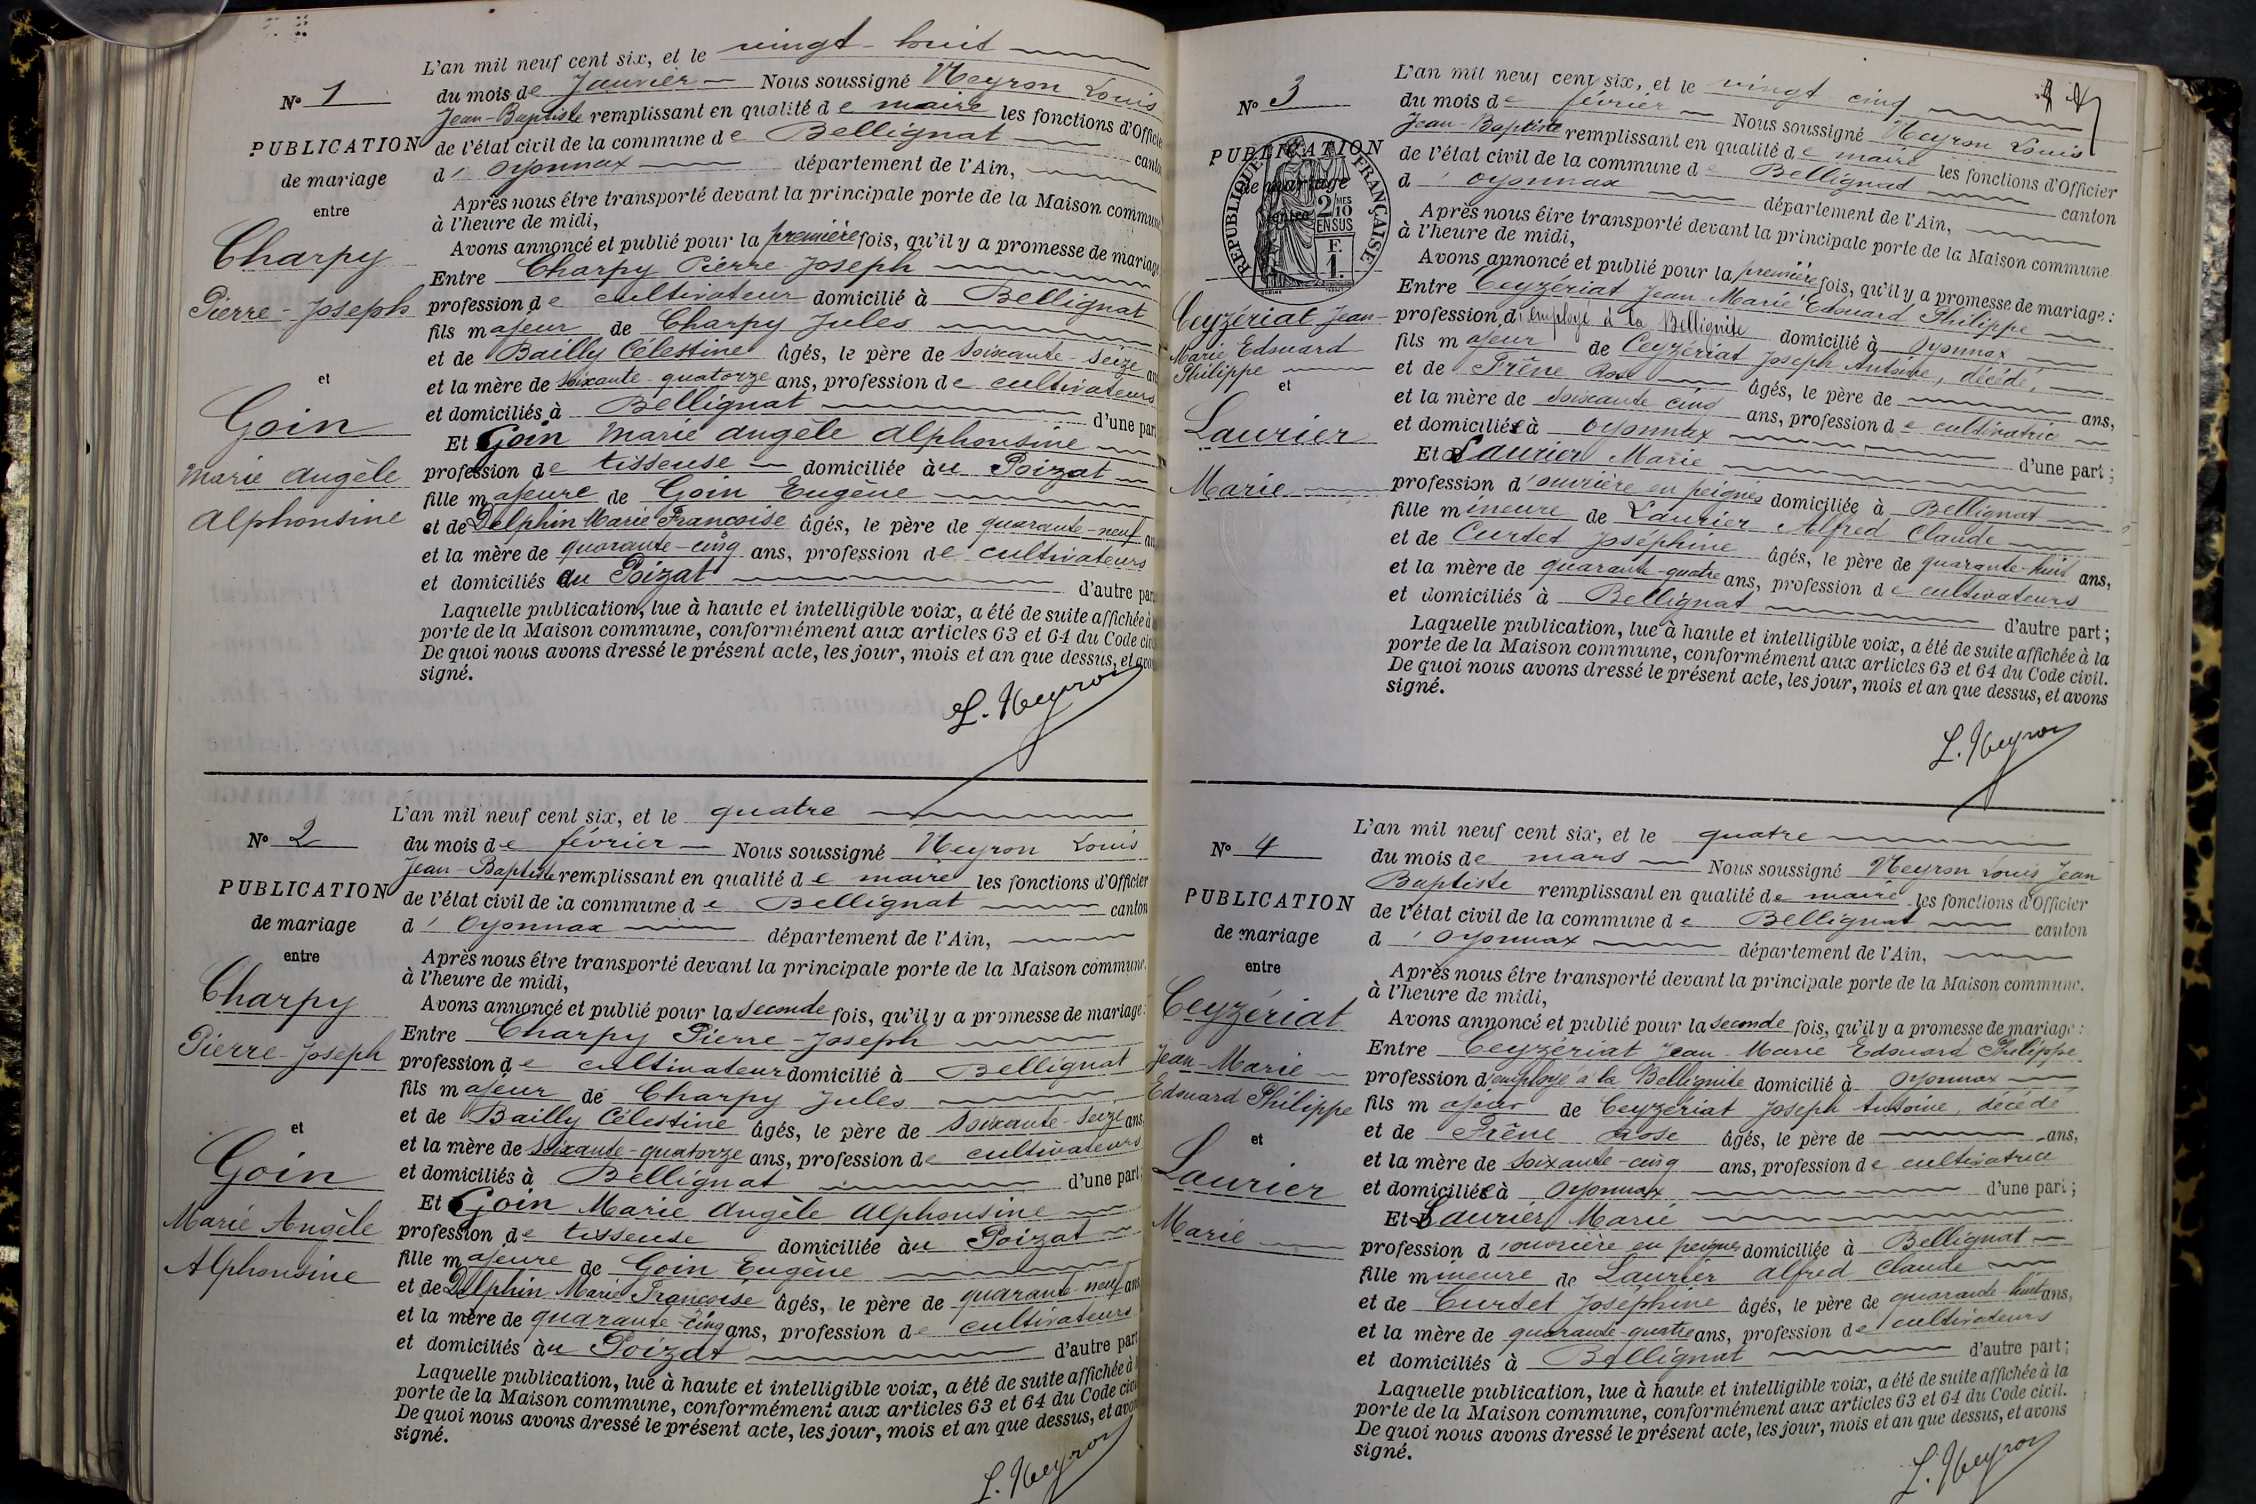 L'an mil neuf cent six, et le vingt-huit
N° 1
du mois de Janvier Nous soussigné Neyron Louis
Jean-Baptiste remplissant en qualité de maire les fonctions d'Officier
PUBLICATION
de l'état civil de la commune de Bellignat canton
de mariage
d'Oyonnax département de l'Ain,
entre
Après nous être transporté devant la principale porte de la Maison commune
à l'heure de midi,
Charpy
Pierre-Joseph
Avons annoncé et publié pour la première fois, qu'il y a promesse de mariage
Entre Charpy Pierre-Joseph
profession de cultivateur domicilié à Bellignat
fils majeur de Charpy Jules
et de Bailly Célestine âgés, le père de soixante-seize ans
et
et la mère de soixante-quatorze ans, profession de cultivateurs
et domiciliés à Bellignat d'une part
Goin
Marie Angèle
Alphonsine
Et Goin Marie Angèle Alphonsine
profession de tisseuse domiciliée au Poizat
fille majeure de Goin Eugène
et de Delphin Marie Françoise âgés, le père de quarante-neuf ans
et la mère de quarante-cinq ans, profession de cultivateurs
et domiciliés au Poizat d'autre part
Laquelle publication, lue à haute et intelligible voix, a été de suite affichée à la
porte de la Maison commune, conformément aux articles 63 et 64 du Code civil
De quoi nous avons dressé le présent acte, les jour, mois et an que dessus, et avons
signé.
L. Neyron
L'an mil neuf cent six, et le quatre
N° 2
du mois de février Nous soussigné Neyron Louis
Jean-Baptiste remplissant en qualité de maire les fonctions d'Officier
PUBLICATION
de l'état civil de la commune de Bellignat canton
de mariage
d'Oyonnax département de l'Ain,
entre
Après nous être transporté devant la principale porte de la Maison commune,
à l'heure de midi,
Charpy
Pierre-Joseph
Avons annoncé et publié pour la seconde fois, qu'il y a promesse de mariage:
Entre Charpy Pierre-Joseph
profession de cultivateur domicilié à Bellignat
fils majeur de Charpy Jules
et de Bailly Célestine âgés, le père de soixante-seize ans
et
et la mère de soixante-quatorze ans, profession de cultivateurs
et domiciliés à Bellignat d'une part;
Goin
Marie Angèle
Alphonsine
Et Goin Marie Angèle Alphonsine
profession de tisseuse domiciliée au Poizat
fille majeure de Goin Eugène
et de Delphin Marie Françoise âgés, le père de quarante-neuf ans
et la mère de quarante-cinq ans, profession de cultivateurs
et domiciliés au Poizat d'autre part
Laquelle publication, lue à haute et intelligible voix, a été de suite affichée à la
porte de la Maison commune, conformément aux articles 63 et 64 du Code civil
De quoi nous avons dressé le présent acte, les jour, mois et an que dessus, et avons
signé.
L. Neyron
L'an mil neuf cent six, et le vingt cinq
N° 3
du mois de février Nous soussigné Neyron Louis
Jean-Baptiste remplissant en qualité de maire les fonctions d'Officier
PUBLICATION
de l'état civil de la commune de Bellignat canton
de mariage
d'Oyonnax département de l'Ain,
entre
RÉPUBLIQUE FRANÇAISE
2/10 MES
EN SUS
F.
1.
Après nous être transporté devant la principale porte de la Maison commune
à l'heure de midi,
Avons annoncé et publié pour la première fois, qu'il y a promesse de mariage:
Entre Ceyzériat Jean-Marie Edouard Philippe
Ceyzériat Jean-
Marie Edouard
Philippe
profession d'employé à la Bellignite domicilié à Oyonnax
fils majeur de Ceyzériat Joseph Antoine, décédé,
et de Frêne Rose âgés, le père de ans,
et
et la mère de soixante cinq ans, profession de cultivatrice
et domiciliée à Oyonnax d'une part;
Laurier
Marie
Et Laurier Marie
profession d'ouvrière en peignes domiciliée à Bellignat
fille mineure de Laurier Alfred Claude
et de Curtet Joséphine âgés, le père de quarante-huit ans,
et la mère de quarante-quatre ans, profession de cultivateurs
et domiciliés à Bellignat d'autre part;
Laquelle publication, lue à haute et intelligible voix, a été de suite affichée à la
porte de la Maison commune, conformément aux articles 63 et 64 du Code civil.
De quoi nous avons dressé le présent acte, les jour, mois et an que dessus, et avons
signé.
L. Neyron
L'an mil neuf cent six, et le quatre
N° 4
du mois de mars Nous soussigné Neyron Louis Jean
Baptiste remplissant en qualité de maire les fonctions d'Officier
PUBLICATION
de l'état civil de la commune de Bellignat canton
de mariage
d'Oyonnax département de l'Ain,
entre
Après nous être transporté devant la principale porte de la Maison commune.
à l'heure de midi,
Ceyzériat
Jean-Marie
Edouard Philippe
Avons annoncé et publié pour la seconde fois, qu'il y a promesse de mariage:
Entre Ceyzériat Jean-Marie Edouard Philippe
profession d'employé à la Bellignite domicilié à Oyonnax
fils majeur de Ceyzériat Joseph Antoine, décédé
et de Frêne Rose âgés, le père de ans,
et
et la mère de soixante-cinq ans, profession de cultivatrice
et domiciliée à Oyonnax d'une part;
Laurier
Marie
Et Laurier Marie
profession d'ouvrière en peignes domiciliée à Bellignat
fille mineure de Laurier Alfred Claude
et de Curtet Joséphine âgés, le père de quarante-huit ans,
et la mère de quarante-quatre ans, profession de cultivateurs
et domiciliés à Bellignat d'autre part;
Laquelle publication, lue à haute et intelligible voix, a été de suite affichée à la
porte de la Maison commune, conformément aux articles 63 et 64 du Code civil.
De quoi nous avons dressé le présent acte, les jour, mois et an que dessus, et avons
signé.
L. Neyron